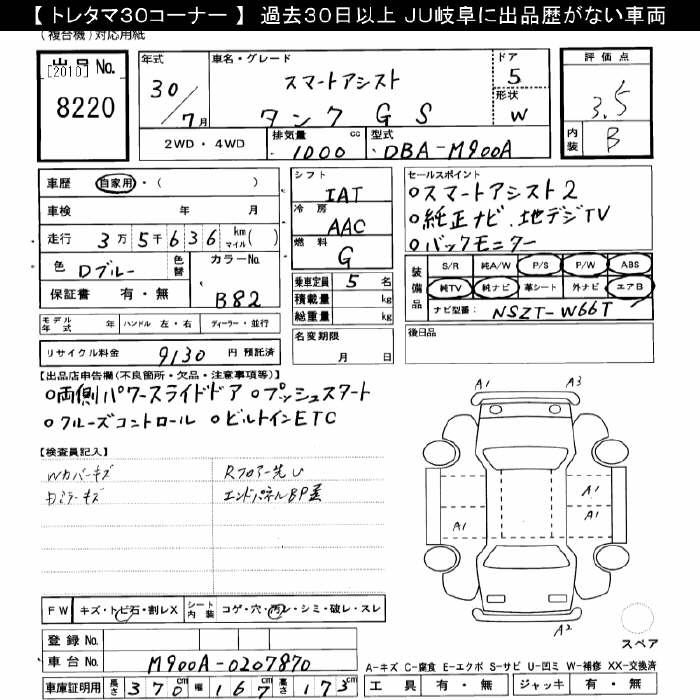 【 トレタマ30コーナー 】 過去30日以上 JU岐阜に出品歴がない車両
(複合機)対応用紙
出品No. [2010] 8220
年式 30/7月
車名・グレード スマートアシスト タンク G S
ドア 5
形状 W
評価点 3.5
内装 B
2WD・4WD
排気量 1000 cc
型式 DBA-M900A
車歴 自家用・( )
車検 年 月
走行 3万5千636 km マイル( )
色 Dブルー 色替
カラーNo. B82
保証書 有・無
シフト IAT
冷房 AAC
燃料 G
乗車定員 5 名
積載量 kg
総重量 kg
名変期限 月 日
セールスポイント
○スマートアシスト2
○純正ナビ.地デジTV
○バックモニター
装備品 S/R 純A/W P/S P/W ABS
純TV 純ナビ 革シート 外ナビ エアB
ナビ型番: NSZT-W66T
後日品
モデル年式 年 ハンドル 左・右 ディーラー・並行
リサイクル料金 9130 円 預託済
【出品店申告欄(不良箇所・欠品・注意事項等)】
○両側パワースライドドア ○プッシュスタート
○クルーズコントロール ○ビルトインETC
【検査員記入】
Wカバーキズ Rフロアー先し
エンドパネルBP
A1 A3
A1
A1 A1
A2
スペア
FW キズ・トビ石・割レX シート内装 コゲ・穴・汚レ・シミ・破レ・スレ
登録No.
車台No. M900A-0207870
車庫証明用 長さ 370cm 幅 167cm 高さ 173cm
A-キズ C-腐食 E-エクボ S-サビ U-凹ミ W-補修 XX-交換済
工具 有・無 ジャッキ 有・無